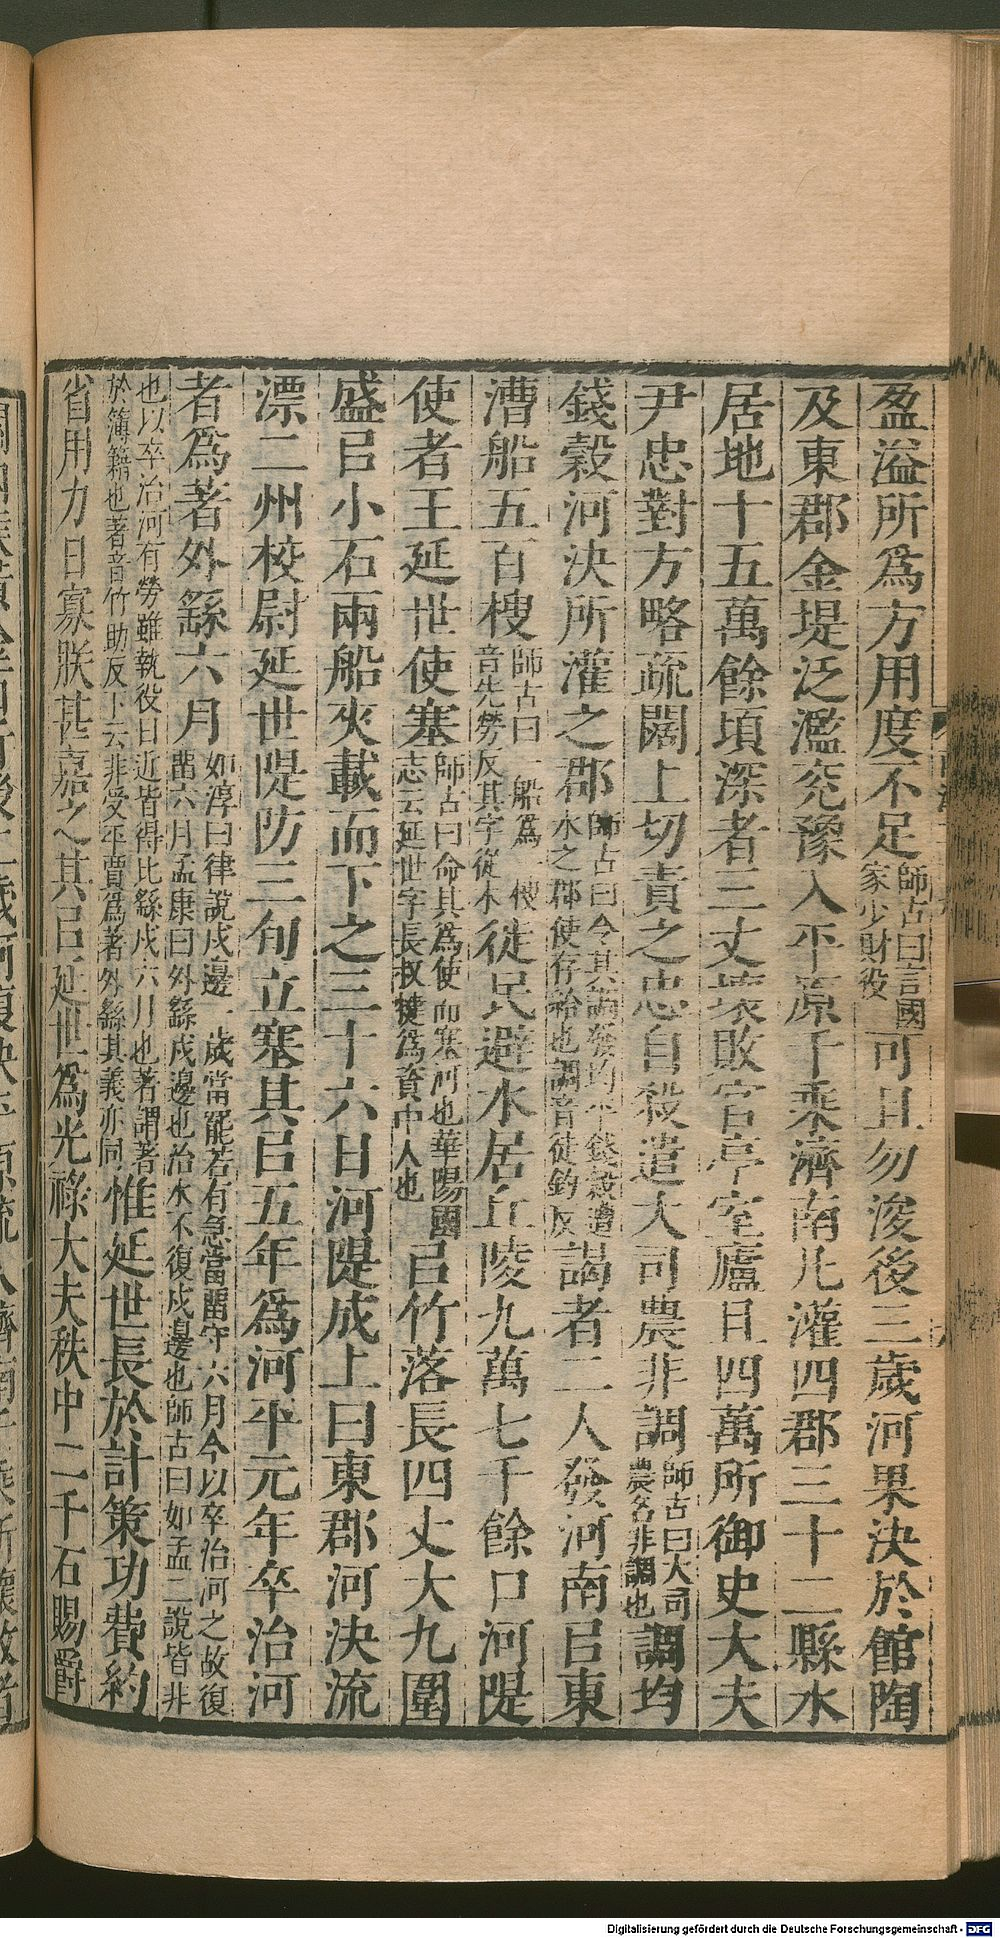 盈溢所爲方用度不足師古曰言國家少財役可且勿浚後三歲河果決於館陶
及東郡金堤泛濫兖豫入平原千乘濟南凡灌四郡三十二縣水
居地十五萬餘頃深者三丈壞敗官亭室廬且四萬所御史大夫
尹忠對方略疏闊上切責之忠自殺遣大司農非調師古曰大司農名非調也調均
錢穀河決所灌之郡師古曰令其調發均平錢穀遭水之郡使存給也調音徒釣反謁者二人發河南㠯東
漕船五百㮴師古曰一船爲一㮴音先勞反其字從木徙民避水居丘陵九萬七千餘口河隄
使者王延世使塞師古曰命其爲使而塞河也華陽國志云延世字長叔犍爲資中人也㠯竹落長四丈大九圍
盛㠯小石兩船夾載而下之三十六日河隄成上曰東郡河決流
漂二州校尉延世隄防三旬立塞其㠯五年爲河平元年卒治河
者爲著外繇六月如淳曰律說戍邊一歲當罷若有急當留守六月今以卒治河之故復留六月孟康曰外繇戍邊也治水不復戍邊也師古曰如孟二說皆非
也以卒治河有勞雖執役日近皆得比繇戍六月也著謂著於簿籍也著音竹助反下云非受平賈爲著外繇其義亦同惟延世長於計策功費約
省用力日寡朕甚嘉之其㠯延世爲光祿大夫秩中二千石賜爵
Digitalisierung gefördert durch die Deutsche Forschungsgemeinschaft - DFG